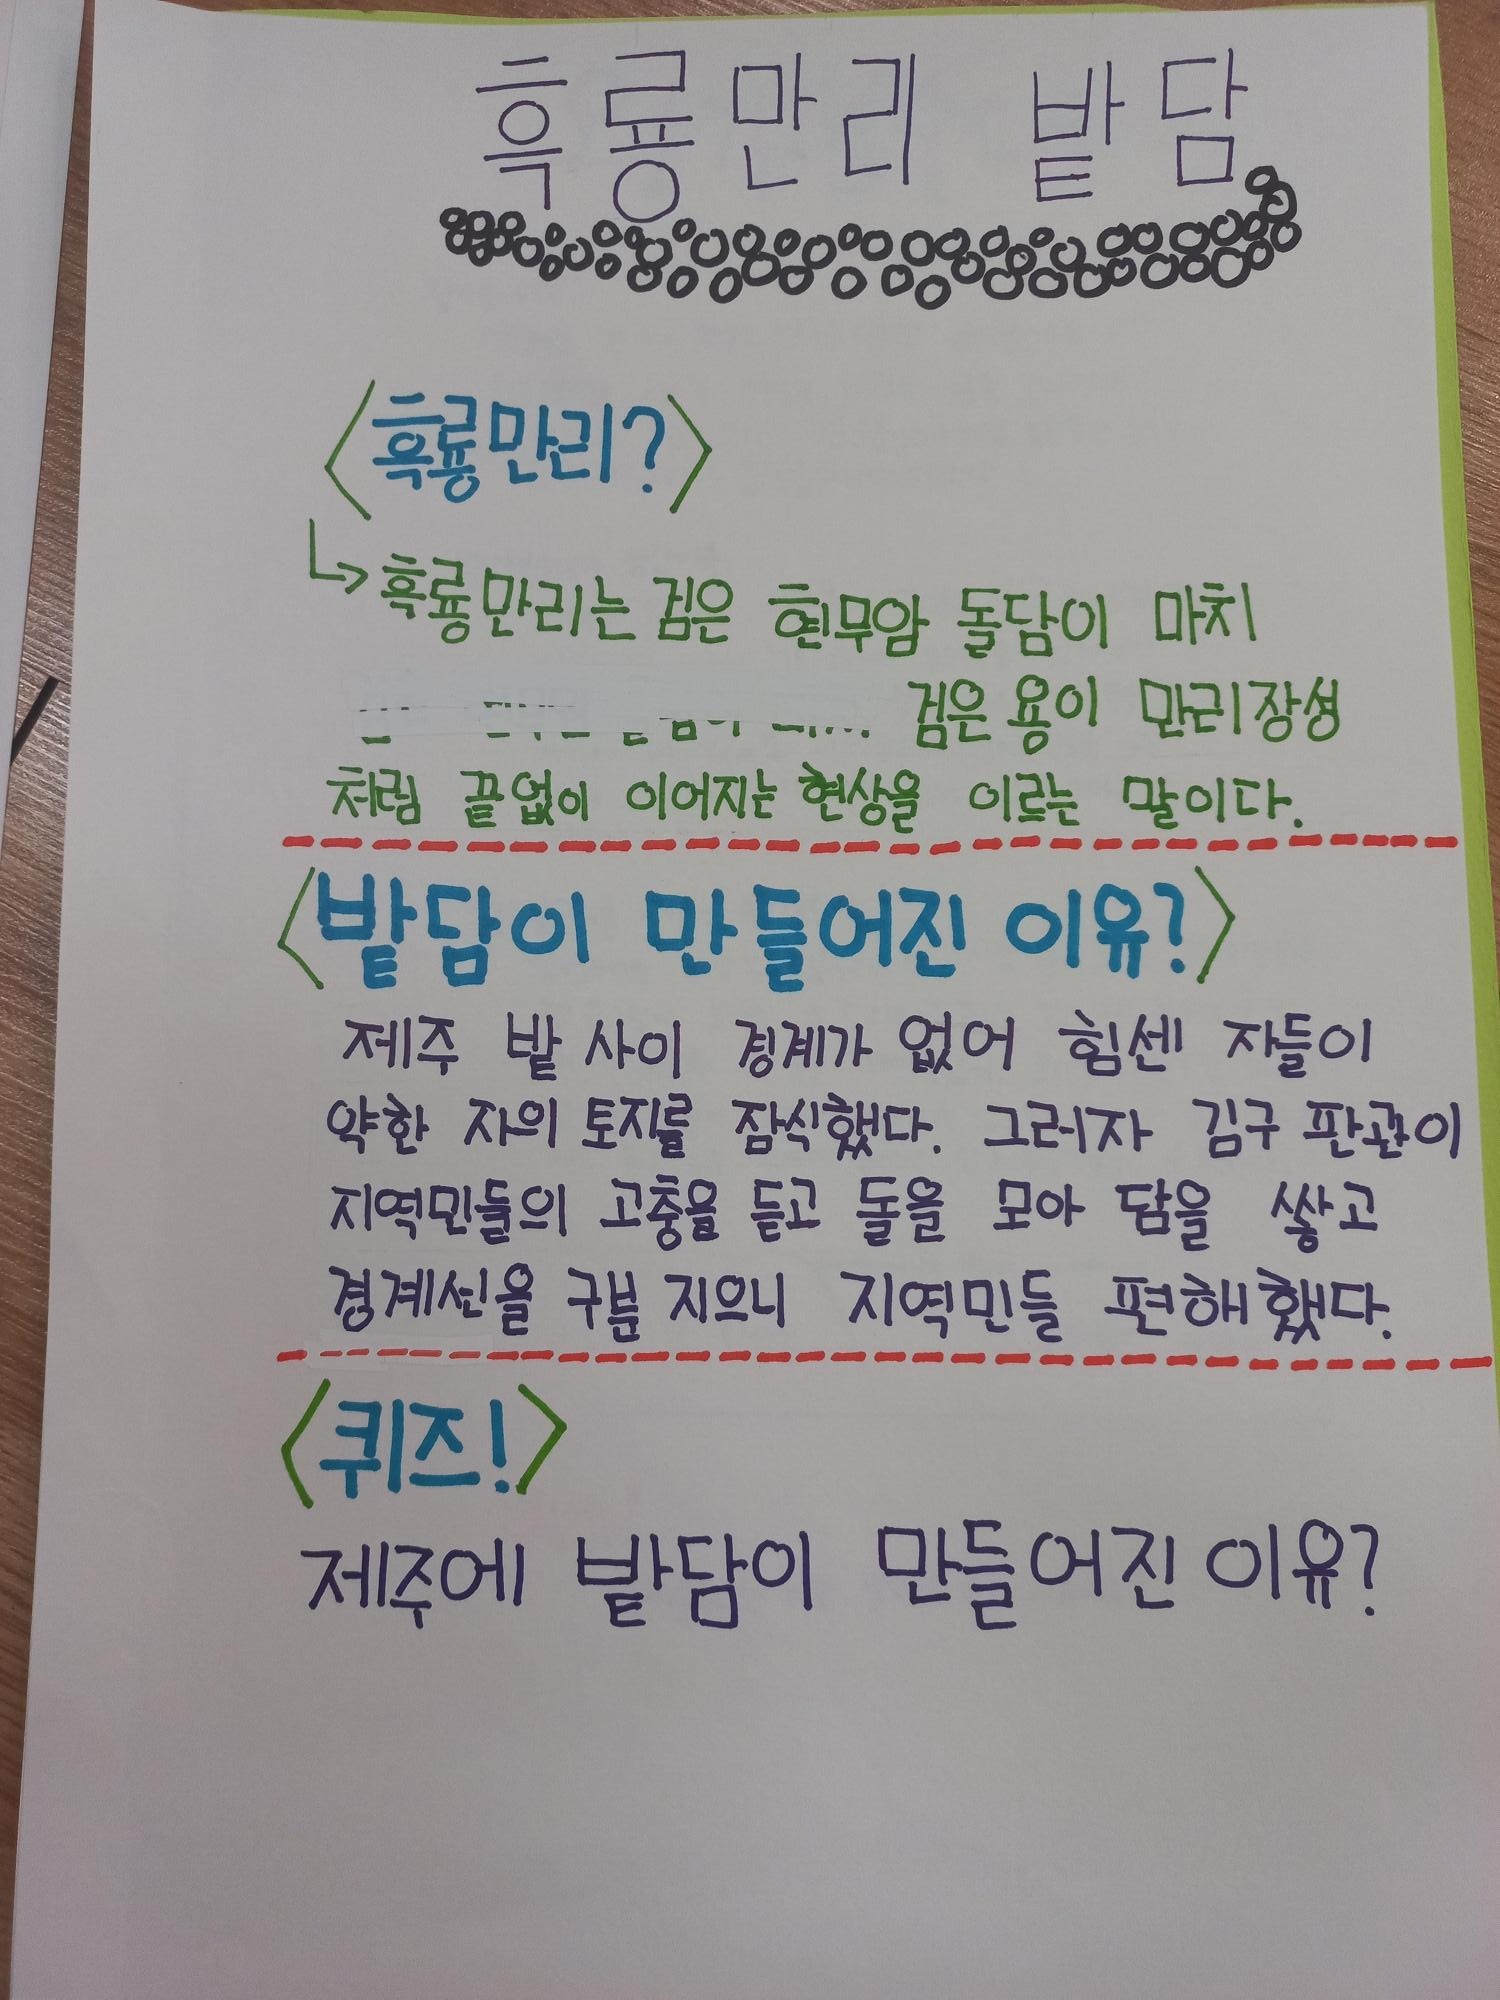 흑룡만리 밭담
<흑룡만리?>
↳ 흑룡만리는 검은 현무암 돌담이 마치
검은 용이 만리장성
처럼 끝없이 이어지는 현상을 이르는 말이다.
<밭담이 만들어진 이유?>
제주 밭 사이 경계가 없어 힘센 자들이
약한 자의 토지를 잠식했다. 그러자 김구 판관이
지역민들의 고충을 듣고 돌을 모아 담을 쌓고
경계선을 구분 지으니 지역민들 편해했다.
<퀴즈!>
제주에 밭담이 만들어진 이유?